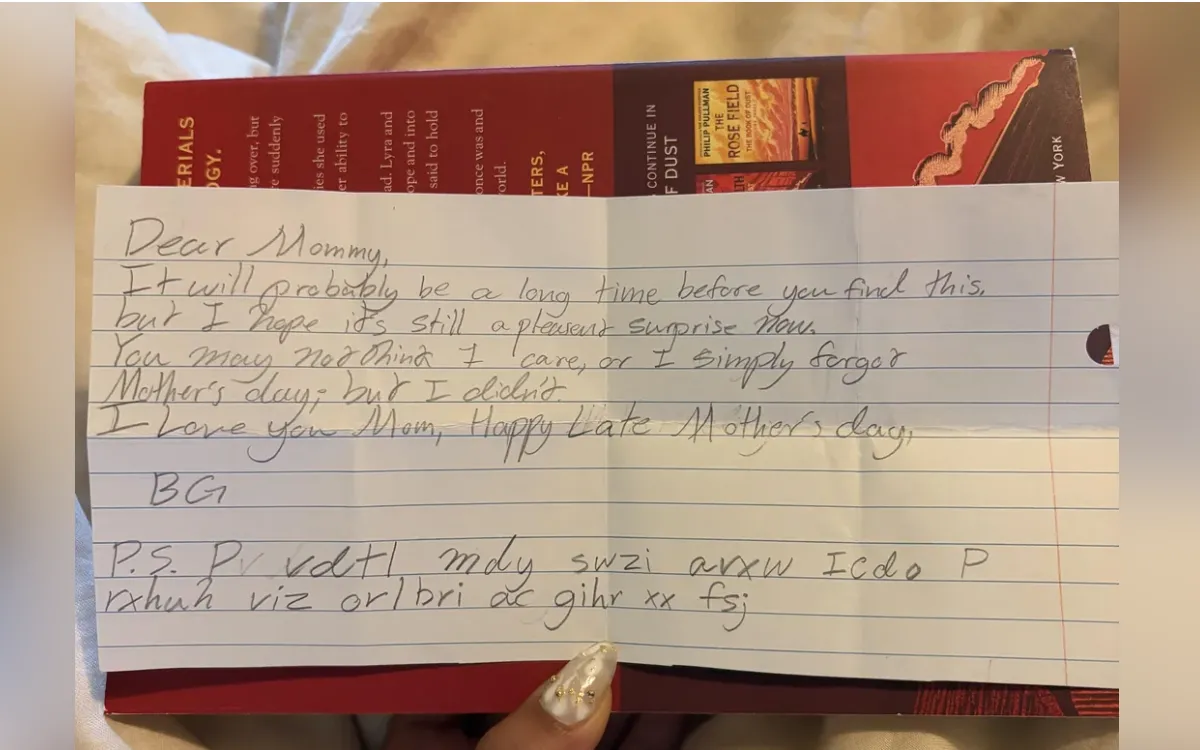 ERIALS
OGY.
ng over, but
e suddenly
ies she used
er ability to
ad. Lyra and
ope and into
said to hold
once was and
orld.
TERS,
KE A
—NPR
CONTINUE IN
F DUST
PHILIP PULLMAN
THE
ROSE FIELD
THE BOOK OF DUST
W YORK
Dear Mommy,
It will probably be a long time before you find this.
but I hope it's still a pleasent surprise now.
You may not think I care, or I simply forgot
Mother's day; but I didn't.
I Love you Mom, Happy Late Mother's day,
BG
P.S. Pv vdtl mdy swzi avxw Icdo P
rxhuh viz orlbri ac gihr xx fsj